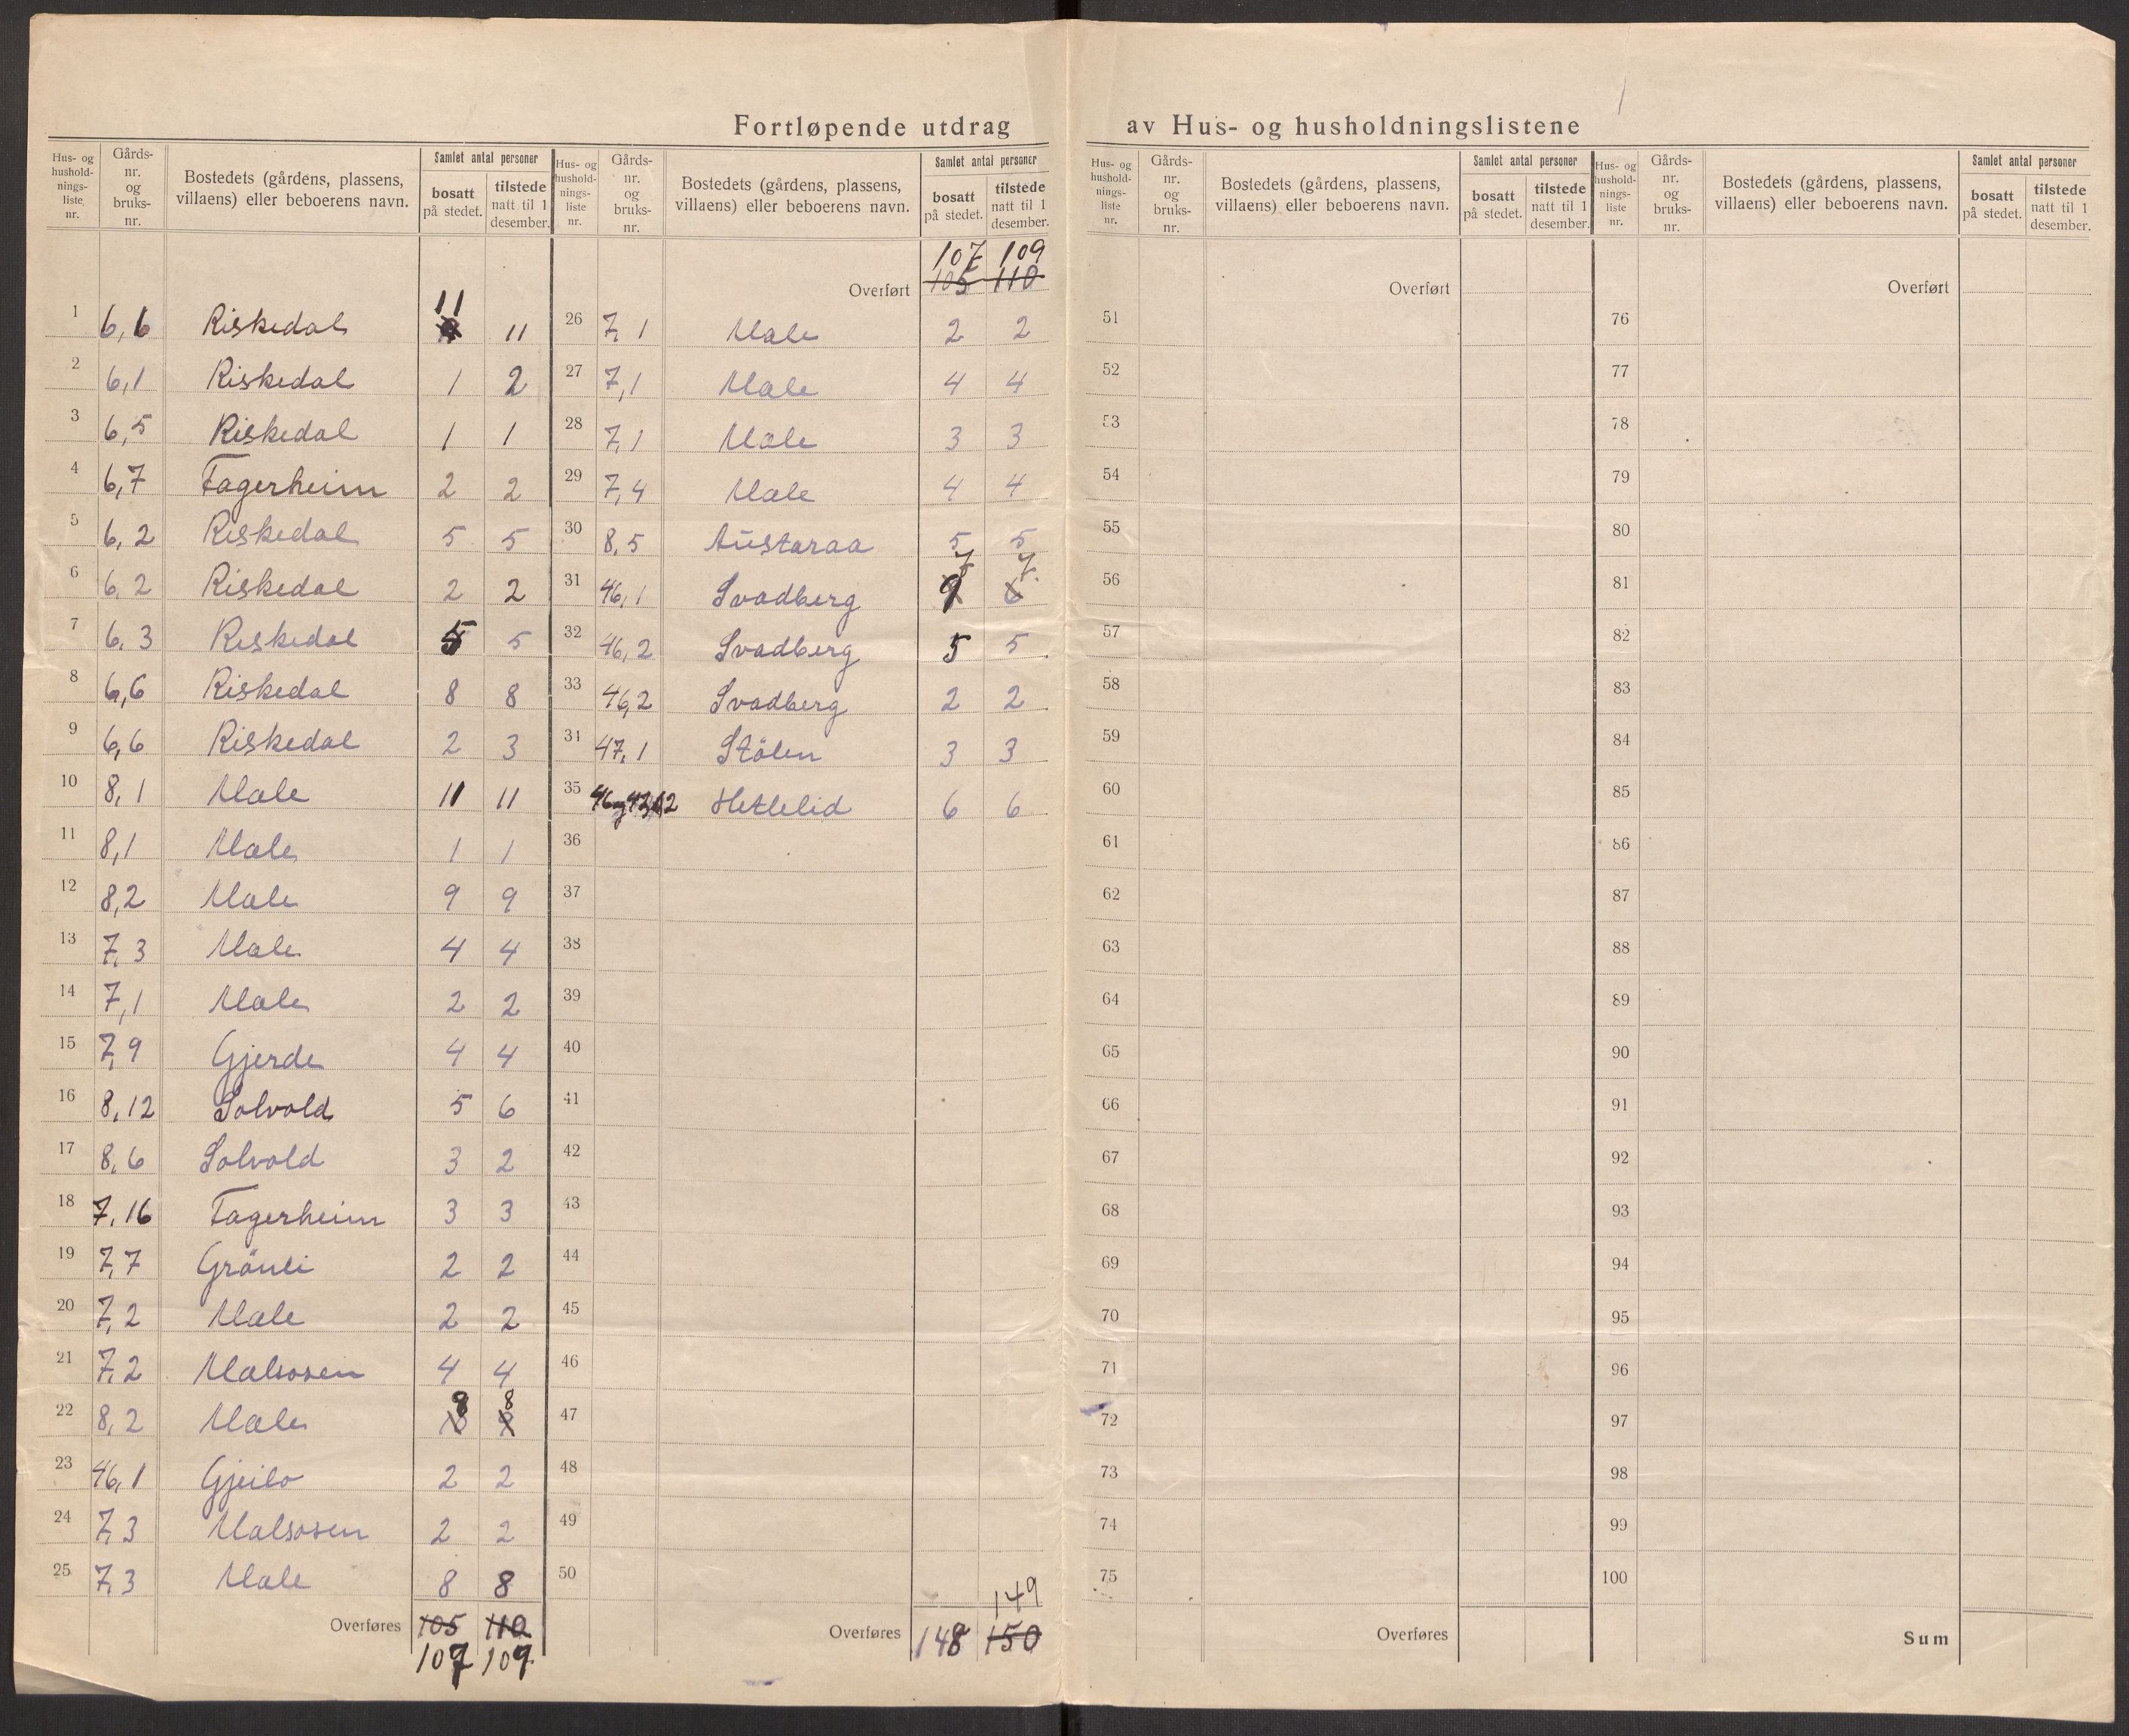 Fortløpende utdrag av Hus- og husholdningslistene
Hus- og husholdningsliste nr. | Gårdsnr. og bruksnr. | Bostedets (gårdens, plassens, villaens) eller beboerens navn. | Samlet antal personer: bosatt på stedet. | tilstede natt til 1 desember.
1 6,6 Riskedal 11 11
2 6,1 Riskedal 1 2
3 6,5 Riskedal 1 1
4 6,7 Fagerheim 2 2
5 6,2 Riskedal 5 5
6 6,2 Riskedal 2 2
7 6,3 Riskedal 5 5
8 6,6 Riskedal 8 8
9 6,6 Riskedal 2 3
10 8,1 Male 11 11
11 8,1 Male 1 1
12 8,2 Male 9 9
13 7,3 Male 4 4
14 7,1 Male 2 2
15 7,9 Gjerde 4 4
16 8,12 Solvold 5 6
17 8,6 Solvold 3 2
18 7,16 Fagerheim 3 3
19 7,7 Grönli 2 2
20 7,2 Male 2 2
21 7,2 Malsosen 4 4
22 8,2 Male 8 8
23 46,1 Gjeilo 2 2
24 7,3 Malsosen 2 2
25 7,3 Male 8 8
Overføres 105 110
107 109
Hus- og husholdningsliste nr. | Gårdsnr. og bruksnr. | Bostedets (gårdens, plassens, villaens) eller beboerens navn. | Samlet antal personer: bosatt på stedet. | tilstede natt til 1 desember.
107 109
Overført 105 110
26 7,1 Male 2 2
27 7,1 Male 4 4
28 7,1 Male 3 3
29 7,4 Male 4 4
30 8,5 Austaraa 5 5
7 7
31 46,1 Svadberg 9 6
32 46,2 Svadberg 5 5
33 46,2 Svadberg 2 2
34 47,1 Stölen 3 3
35 Hetlelid 6 6
36
37
38
39
40
41
42
43
44
45
46
47
48
49
50
149
Overføres 148 150
Hus- og husholdningsliste nr. | Gårdsnr. og bruksnr. | Bostedets (gårdens, plassens, villaens) eller beboerens navn. | Samlet antal personer: bosatt på stedet. | tilstede natt til 1 desember.
Overført
51
52
53
54
55
56
57
58
59
60
61
62
63
64
65
66
67
68
69
70
71
72
73
74
75
Overføres
Hus- og husholdningsliste nr. | Gårdsnr. og bruksnr. | Bostedets (gårdens, plassens, villaens) eller beboerens navn. | Samlet antal personer: bosatt på stedet. | tilstede natt til 1 desember.
Overført
76
77
78
79
80
81
82
83
84
85
86
87
88
89
90
91
92
93
94
95
96
97
98
99
100
Sum